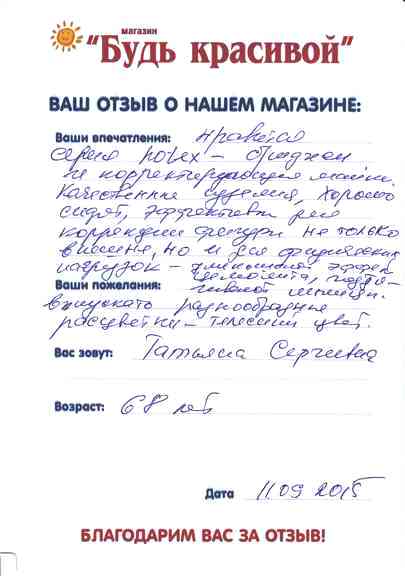 магазин
"Будь красивой"
ВАШ ОТЗЫВ О НАШЕМ МАГАЗИНЕ:
Ваши впечатления: нравится
серия
и корректирующие майки.
Качественные изделия, хорошо
сидят, эффективны для
коррекции фигуры не только
внешне, но и для физических
нагрузок - эффек
Ваши пожелания:
выпускать разнообразные
расцветки - телесный цвет.
Вас зовут: Татьяна Сергеевна
Возраст: 68 лет
Дата 11 09 2015
БЛАГОДАРИМ ВАС ЗА ОТЗЫВ!